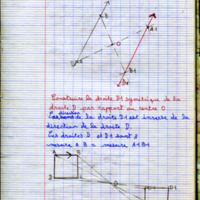 B
A1
O
A
B1
Construire la droite D1 symétrique de la
droite D par rapport au centre O.
la direction
de la droite D1 est inverse de la
direction de la droite D.
Les droites D et D1 sont //
mesure A B = mesure A1 B1
D
D1